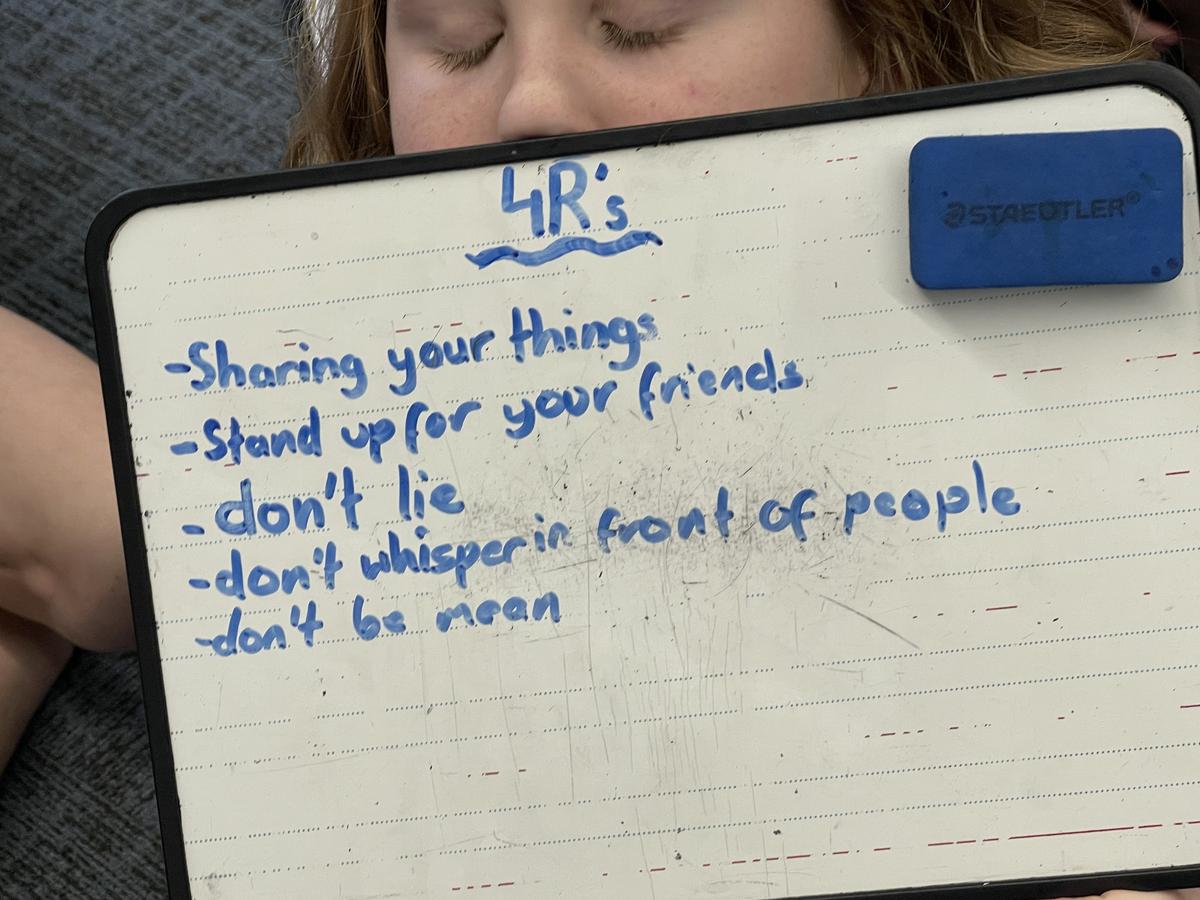 4R's
STAEDTLER®
-Sharing your things
-Stand up for your friends
-don't lie
-don't whisper in front of people
-don't be mean